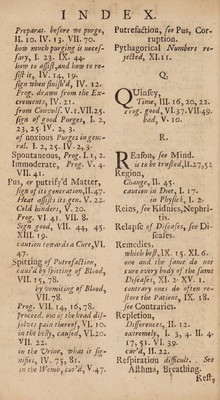 INDEX.
Preparat. before we purge,
II. 10. IV. 13. VII. 70.
how much purging is neces-
sary, I. 23. IX. 44.
how to assist, and how to re-
sist it, IV. 14, 19.
sign when finish'd, IV. 12.
Prog. drawn from the Ex-
crements, IV. 21.
from Convuls. V. 1. VII. 25.
signs of good Purges, I. 2,
23, 25. IV. 2, 3.
of noxious Purges in gene-
ral. I. 2, 25. IV. 2, 3.
Spontaneous, Prog. I. 1, 2.
Immoderate, Prog. V. 4.
VII. 41.
Pus, or putrify'd Matter,
sign of its generation, II. 47.
Heat assists its gen. V. 22.
Cold hinders, V. 20.
Prog. VI 41. VII. 8.
Sign good, VII. 44, 45.
XIII. 19.
caution towards a Cure, VI.
47.
Spitting of Putrefaction,
caus'd by spitting of Blood,
VII. 15, 78.
by vomiting of Blood,
VII. 78.
Prog. VII. 14, 16, 78.
Proceed. out of the head dis-
solves pain thereof, VI. 10.
in the body, caused, VI. 20.
VII. 22.
in the Urine, what it sig-
nifies, IV. 75, 81.
in the Womb, caus'd, V. 47.
Putrefaction, see Pus, Cor-
ruption.
Pythagorical Numbers re-
jected, XI. 11.
Q.
Quinsey,
Time, III. 16, 20, 22.
Prog. good, VI. 37. VII. 49.
bad, V. 10.
R.
Reason, see Mind.
is to be trusted, II. 27, 52
Region,
Change, II. 45.
caution in Diet, I. 17.
in Physick, I. 2.
Reins, see Kidnies, Nephri-
tis.
Relapse of Diseases, see Di-
seases.
Remedies,
which best, IX. 15. XI. 6.
one and the same do not
cure every body of the same
Diseases, XI. 2. XV. 1.
contrary ones do often re-
store the Patient, IX. 18.
see Contraries.
Repletion,
Differences, II. 12.
extremely, I. 3, 4. II. 4,
17, 51. VI. 39.
cur'd, II. 22.
Respiration difficult. See
Asthma, Breathing.
Rest,